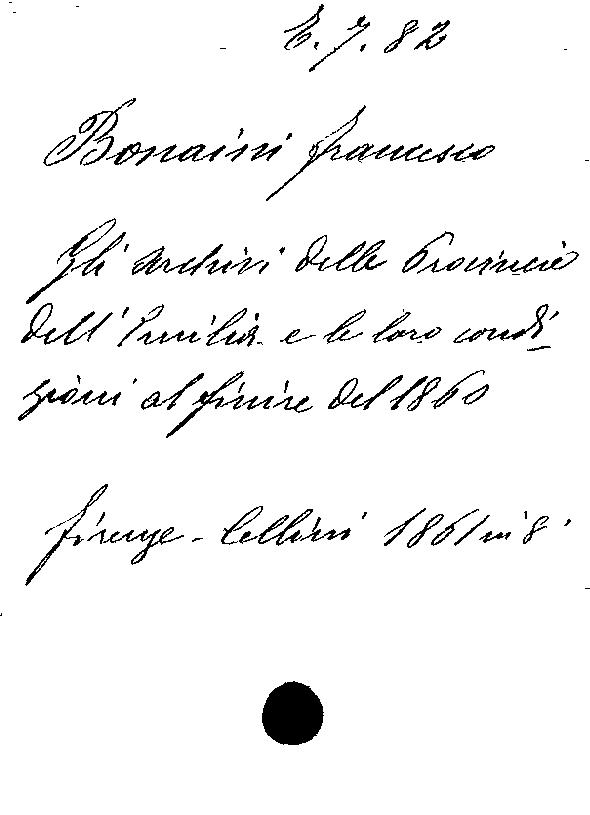 E. 7. 82
Bonaini Francesco
Gli archivi delle Provincie
dell'Emilia e le loro condi
zioni al finire del 1860
Firenze - Cellini 1861 in 8°